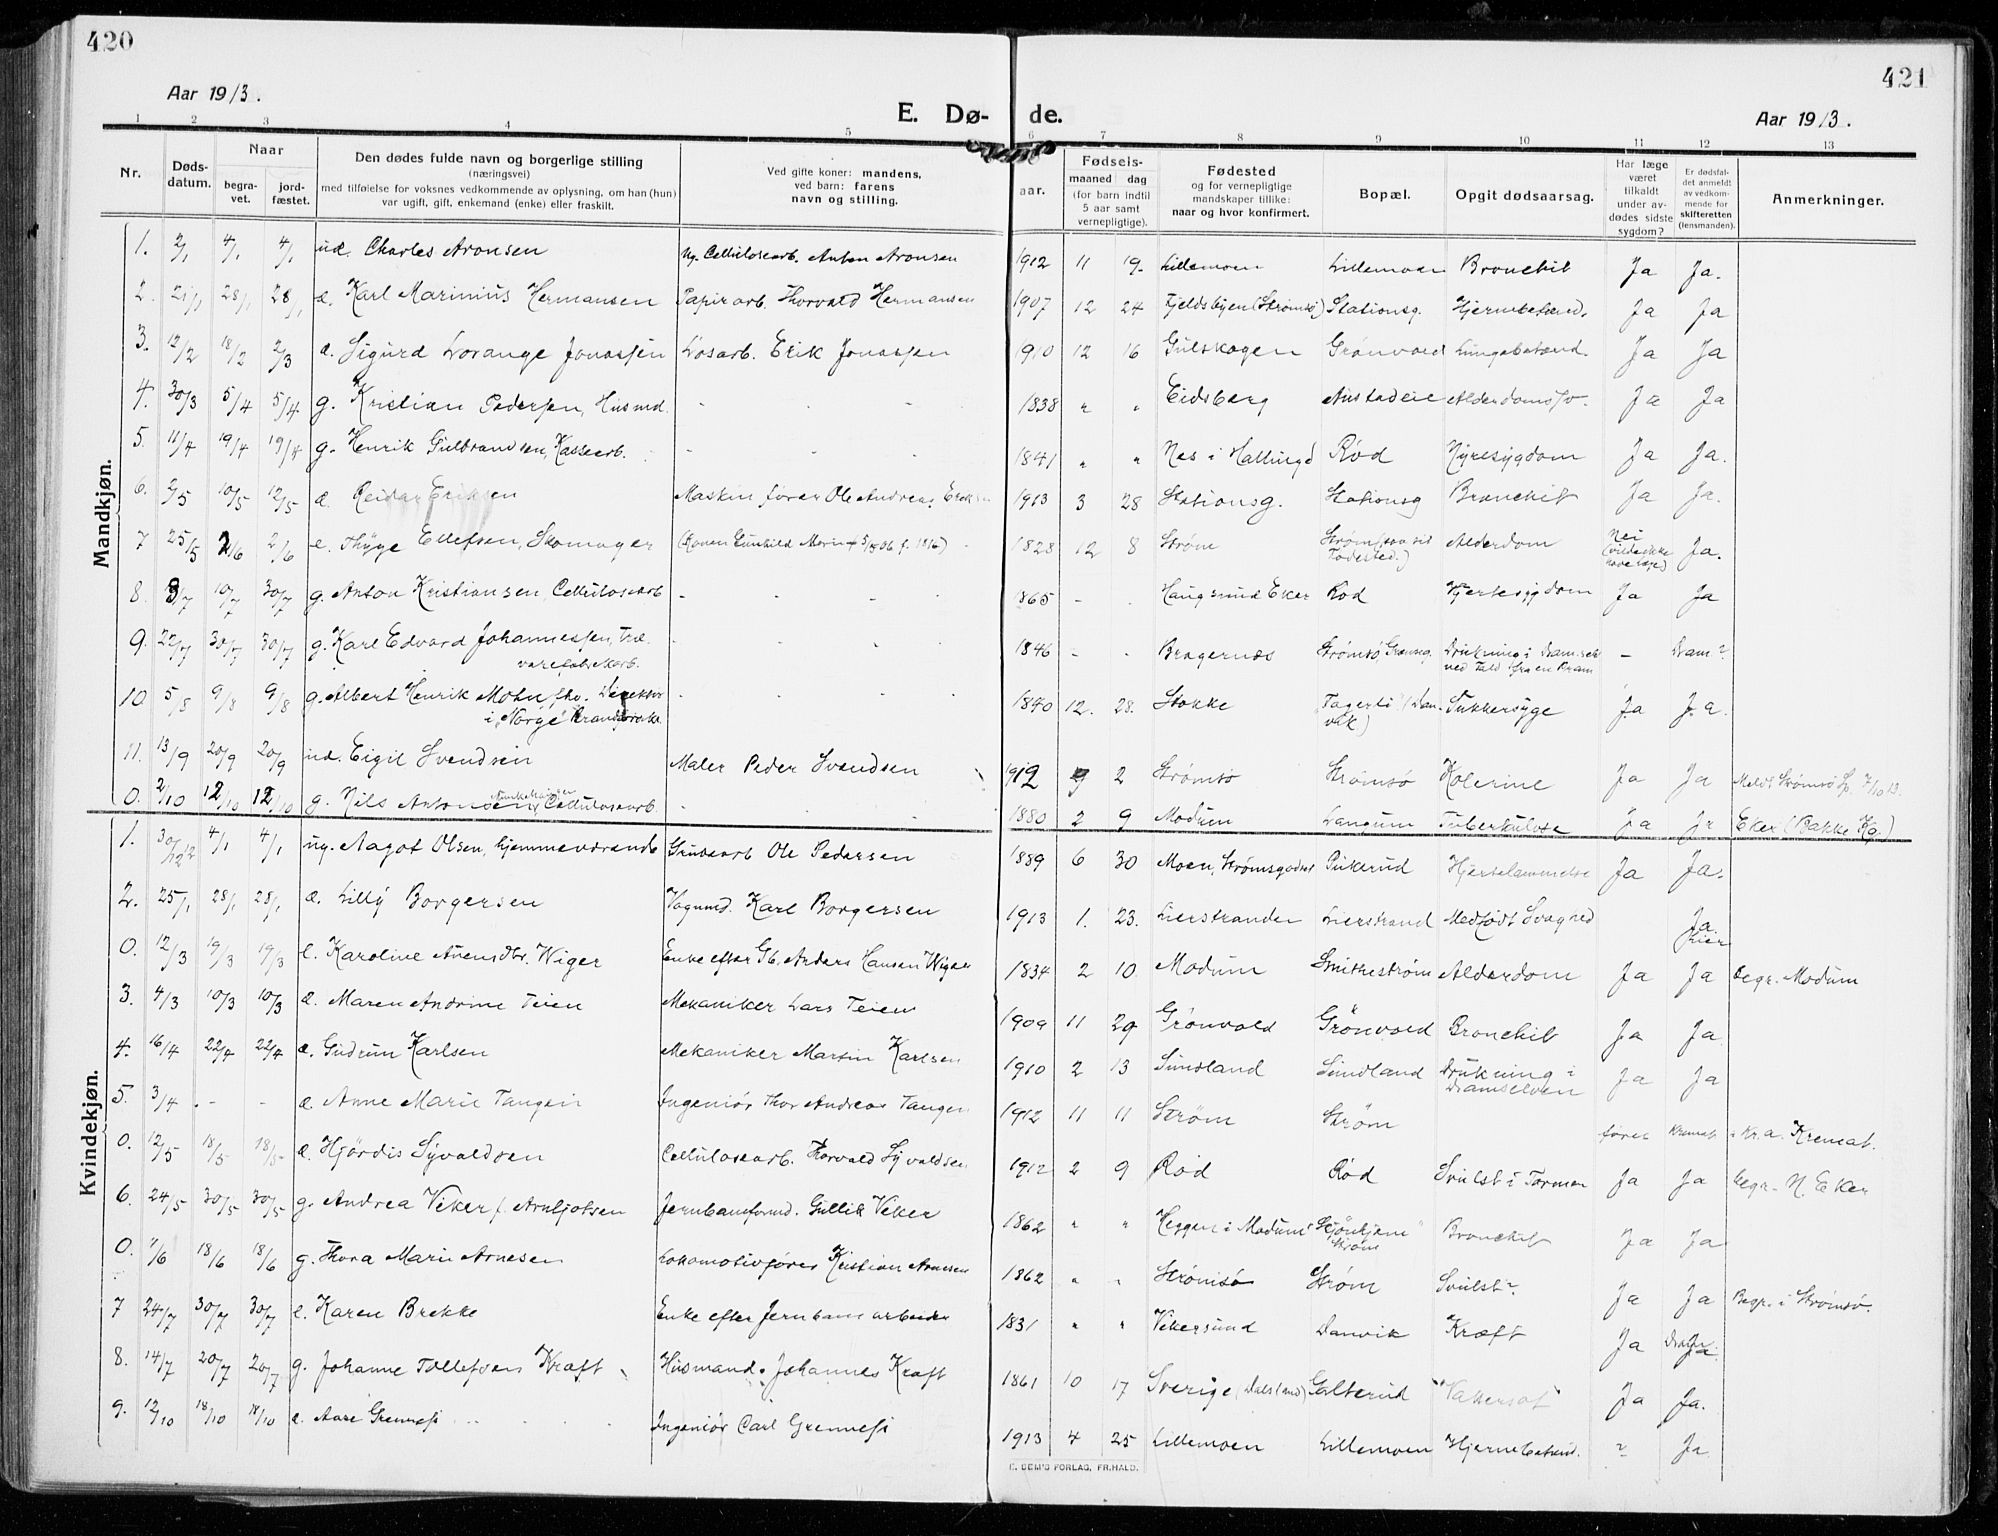 420
421
Aar 1913.
E. Dø-
de.
Aar 1913.
1 2 3 4 5 6 7 8 9 10 11 12 13
Nr.
Døds-
datum.
Naar
begra-
vet.
jord-
fæstet.
Den dødes fulde navn og borgerlige stilling
(næringsvei)
med tilføielse for voksnes vedkommende av oplysning, om han (hun)
var ugift, gift, enkemand (enke) eller fraskilt.
Ved gifte koner: mandens,
ved barn: farens
navn og stilling.
aar.
Fødsels-
maaned dag
(for barn indtil
5 aar samt
vernepligtige).
Fødested
og for vernepligtige
mandskaper tillike:
naar og hvor konfirmert.
Bopæl.
Opgit dødsaarsag.
Har læge
været
tilkaldt
under av-
dødes sidste
sygdom?
Er dødsfal-
det anmeldt
av vedkom-
mende for
skifteretten
(lensmanden).
Anmerkninger.
Mandkjøn.
1. 2/1 4/1 4/1 Charles Aronsen Cellulosearb. Anton Aronsen 1912 11 19. Lillemoen Lillemoen Bronchit Ja Ja.
2. 21/1 28/1 28/1 æ. Karl Marinius Hermansen Papirarb. Thorvald Hermansen 1907 12 24 Fjeldsbyen (Strømsø) Stationsg. Hjernebetænd. Ja Ja
3. 12/2 18/2 2/3 æ. Sigurd Lorange Jonassen Løsarb. Erik Jonassen 1910 12 16 Gulskogen Grønvold Lungebetænd. Ja Ja
4. 30/3 5/4 5/4 g. Kristian Pedersen, Husmd. - - - 1838 " " Eidsberg Alderdomssv. Ja Ja
5. 11/4 19/4 19/4 g. Henrik Gulbrandsen, Kassearb. - - - 1841 " " Nes i Hallingd Rød Nyresygdom Ja Ja.
6. 2/5 10/5 12/5 æ. Reidar Eriksen Maskinfører Ole Andreas Eriksen 1913 3 28 Stationsg. Stationsg Bronchit Ja Ja.
7 25/5 2/6 2/6 e. Thyge Ellefsen, Skomager (Konen Gunhild 1828 12 8 Strøm Alderdom Nei Ja.
(vilde ikke
have læge)
8. 3/7 10/7 30/7 g. Anton Kristiansen, Cellulosearb - - - 1865 - - Haugsund Eker Rød Hjertesygdom Ja Ja
9. 22/7 30/7 30/7 g. Karl Edvard Johannessen, Træ- - - - 1846 - - Bragernæs Strømsø, Grønsg. Drukning i - Dram.
varefabrikarb.
10 5/8 9/8 9/8 g. Albert Henrik Mohn, Direktør - - - 1840 12. 28. Stokke Fagerli (Dan- Sukkersyge Ja Ja.
i "Norge" vik)
11. 13/9 20/9 20/9 Eigil Svendsen Maler Peder Svendsen 1912 9 2 Strømsø Strømsø Kolerine Ja Ja Meldt Strømsø Sp. 7/10 13.
0. 2/10 12/10 12/10 g. Nils Antonsen Cellulosearb. - - 1880 2 9 Modum Langum Tuberkulose Ja Ja Eker (Bakke Kg.)
Kvindekjøn.
1. 30/12 12 4/1 4/1 ug. Aagot Olsen, hjemmeværende Grubearb Ole Pedersen 1889 6 30 Moen, Strømsgodset Pukerud Hjertelammelse Ja Ja.
2. 25/1 28/1 28/1 æ. Lilly Borgersen Vognmd. Karl Borgersen 1913 1. 23. Lierstranden Lierstrand Medfødt Svaghed Ja.
Lier
0. 12/3 19/3 19/3 e. Karoline Wiger Enke efter Gb. Anders Hansen Wiger 1834 2 10. Modum Smithestrøm Alderdom Ja Ja Begr. Modum
3. 4/3 10/3 10/3 æ. Maren Andrine Teien Mekaniker Lars Teien 1909 11 29 Grønvold Grønvold Bronchit Ja Ja
4. 16/4 22/4 22/4 æ. Gudrun Karlsen Mekaniker Martin Karlsen 1910 2 13 Sundland Sundland Drukning i Ja Ja
Dramselven
5. 3/4 - - æ Anne Marie Tangen Ingeniør Thor Andreas Tangen 1912 11 11 Strøm Strøm Kremat. i Kr.a. Kremat.
0. 12/5 18/5 18/5 æ. Hjørdis Syvaldsen Cellulosearb. Thorvald Syvaldsen 1912 2 9 Rød Rød Svulst i Tarmen Ja Ja Begr. N. Eker
6. 24/5 30/5 30/5 g. Andrea Veker f. Arnljotsen Jernbaneformd. Gullik Veker 1862 " " Heggen i Modum Bronchit Ja Ja
Strøm
0. 7/6 18/6 18/6 g. Thora Marie Arnesen Lokomotivfører Kristian Arnesen 1862 " " Strømsø Strøm Svulst Ja Ja Begr. i Strømsø.
7 24/7 30/7 30/7 e. Karen Brekke Enke efter Jernbanearbeider 1831 " " Vikersund Danvik Kræft Ja Ja.
8. 14/7 20/7 20/7 g. Johanne Tollefsen Kraft Husmand Johannes Kraft 1861 10 17 Sverige (Dalsland) Galterud Ja Ja.
9. 12/10 18/10 18/10 Aase Grennesi Ingeniør Carl Grennesi 1913 4 25 Lillemoen Lillemoen Hjernebetænd. ? Ja
E. SEM'S FORLAG, FR.HALD.